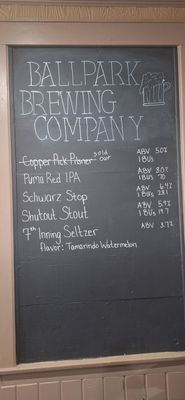 BALLPARK
BREWING
COMPANY
Copper Pick Pilsner sold out ABV 5.0%
IBUs
Puma Red IPA ABV 8.0%
IBUs 70
Schwarz Stop ABV 6.4%
IBUs 28.1
Shutout Stout ABV 5.9%
IBUs 19.7
7th Inning Seltzer ABV 3.7
flavor: Tamarindo Watermelon